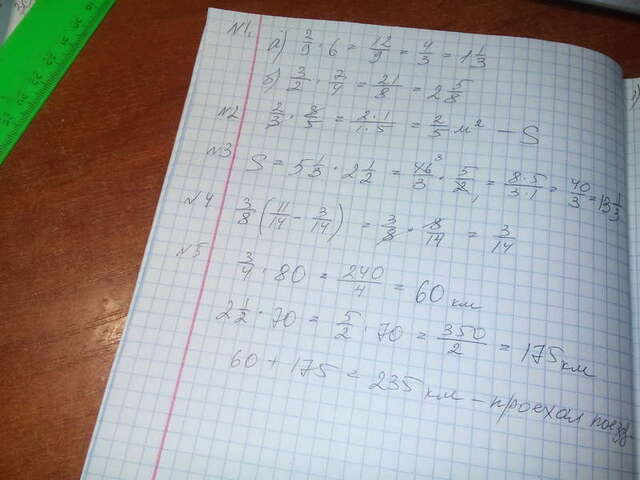 №1.
а) 2/9 · 6 = 12/9 = 4/3 = 1 1/3
б) 3/2 · 7/4 = 21/8 = 2 5/8
№2 2/3 · 8/5 = 2·1/1·5 = 2/5 м² – S
№3 S = 5 1/3 · 2 1/2 = 16/3 · 5/2 = 8·5/3·1 = 40/3 = 13 1/3
№4 3/8 (11/14 – 3/14) = 3/8 · 8/14 = 3/14
№5
3/4 · 80 = 240/4 = 60 км
2 1/2 · 70 = 5/2 · 70 = 350/2 = 175 км
60 + 175 = 235 км – проехал поезд